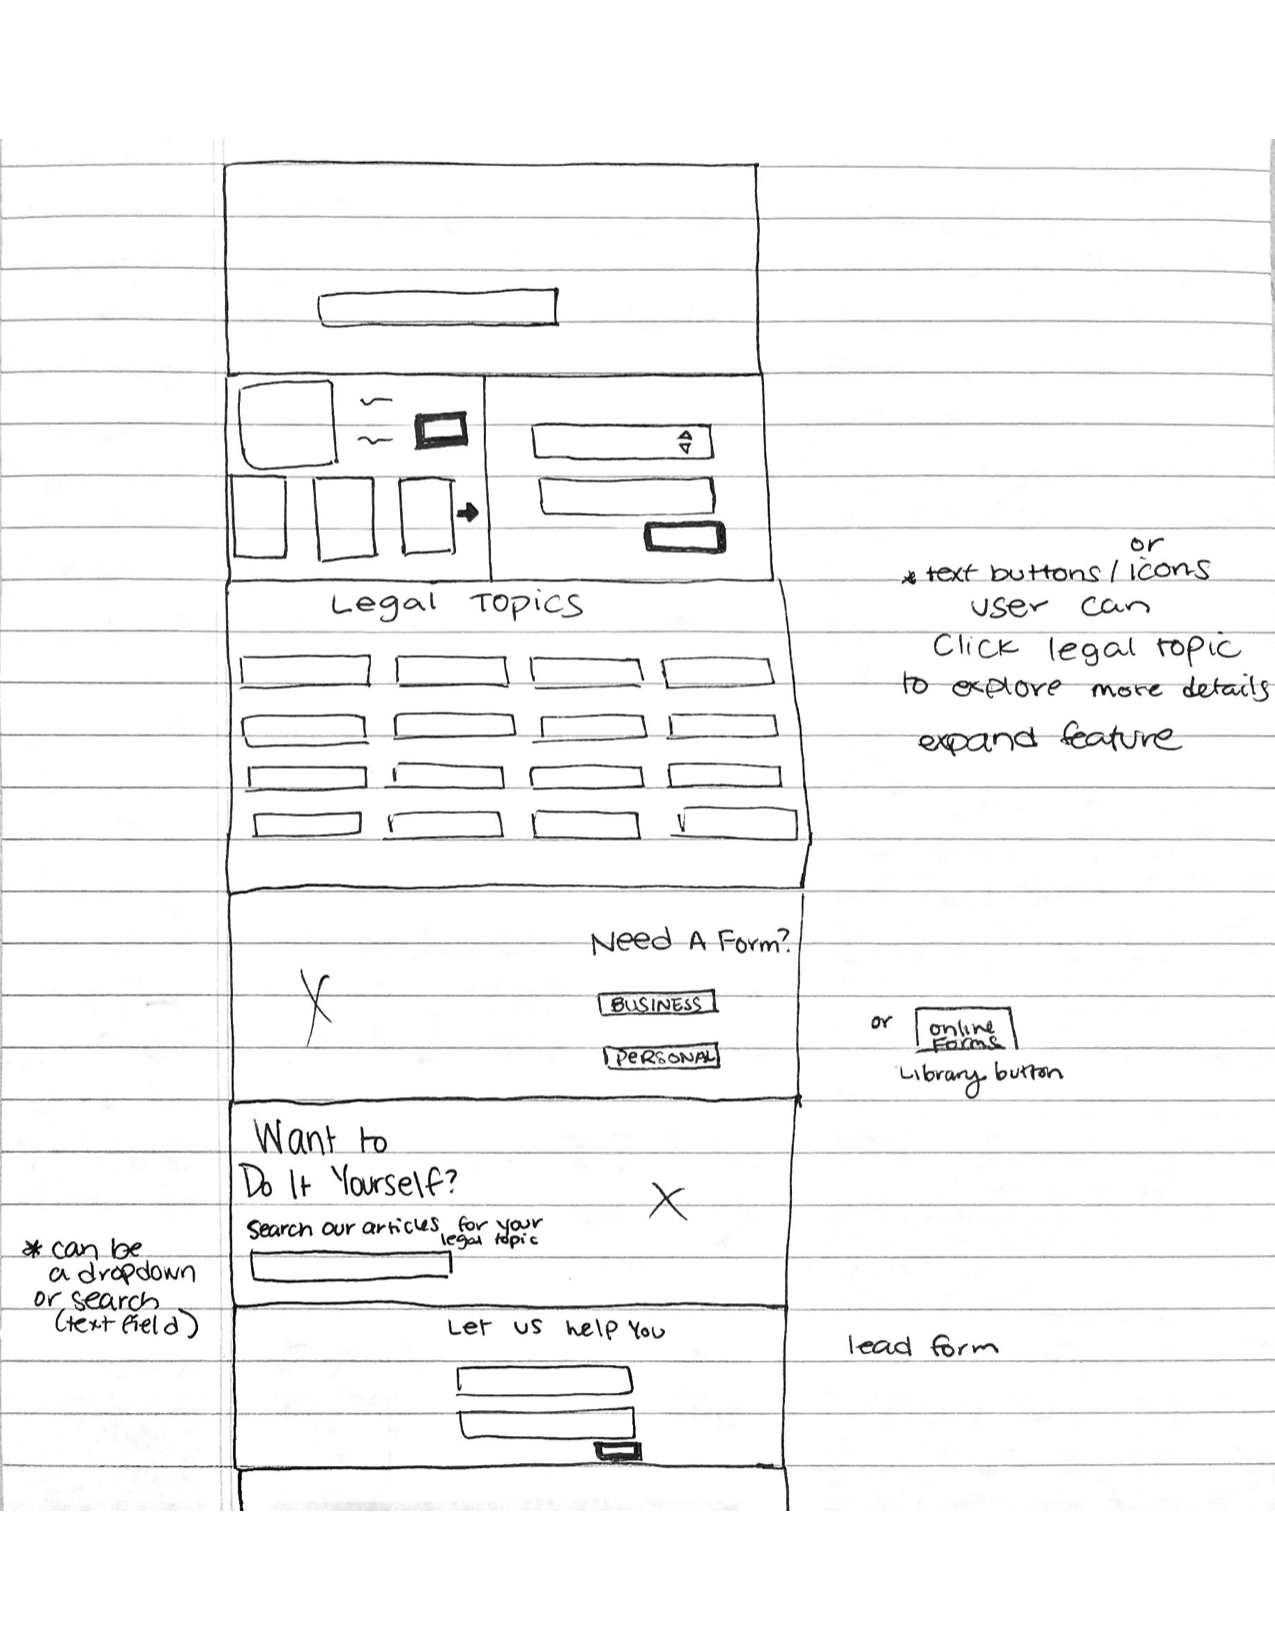 Legal Topics
or
* text buttons / icons
user can
Click legal topic
to explore more details
expand feature
Need A Form?
BUSINESS
PERSONAL
or
online
Forms
Library button
Want to
Do It Yourself?
Search our articles for your
legal topic
* can be
a dropdown
or search
(text field)
Let us help You
lead form